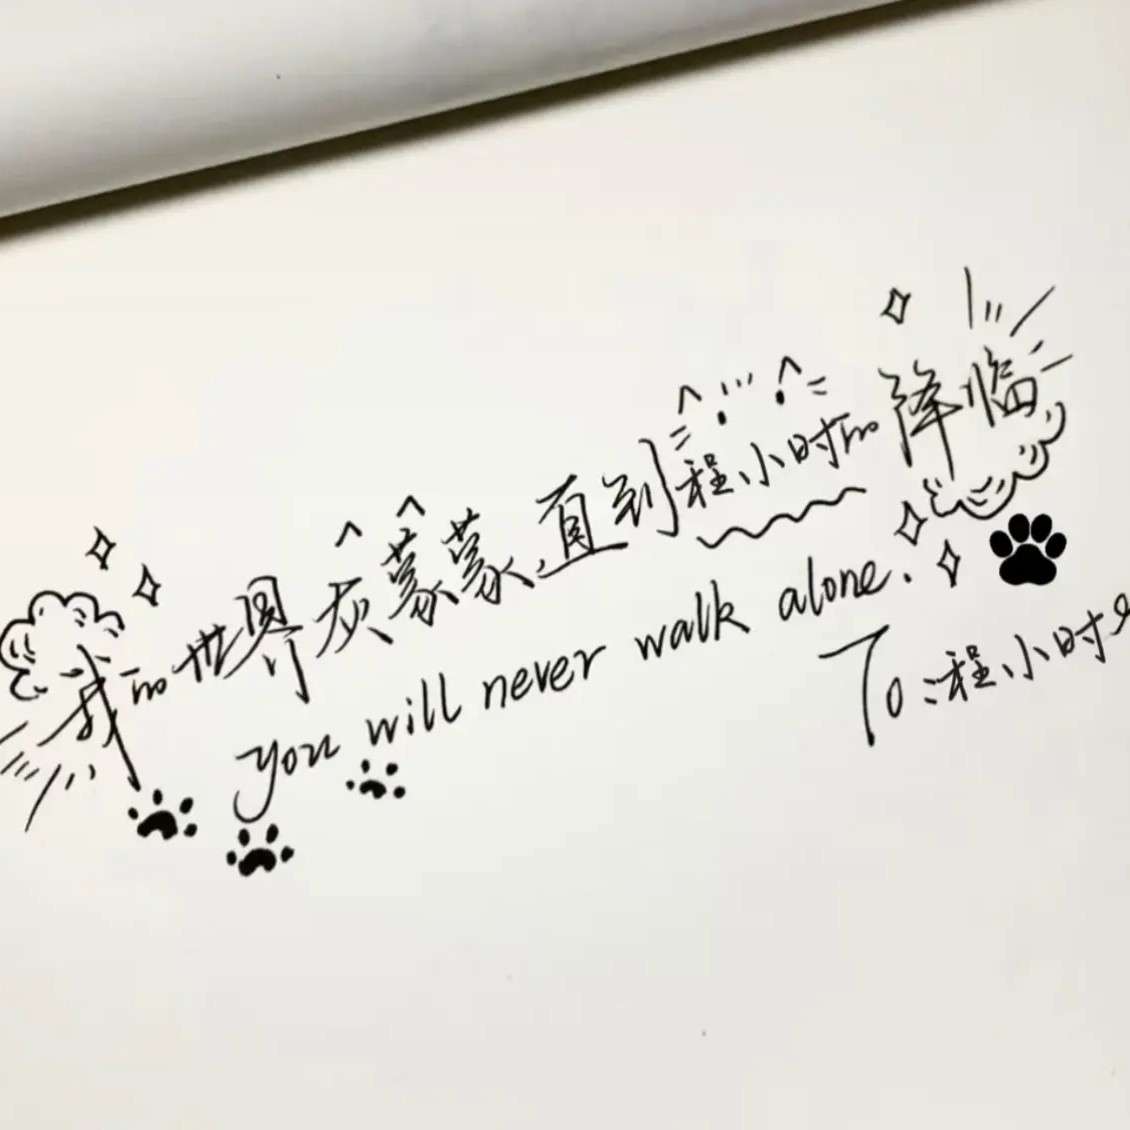 我的世界灰蒙蒙,直到程小时的降临
you will never walk alone.
To:程小时